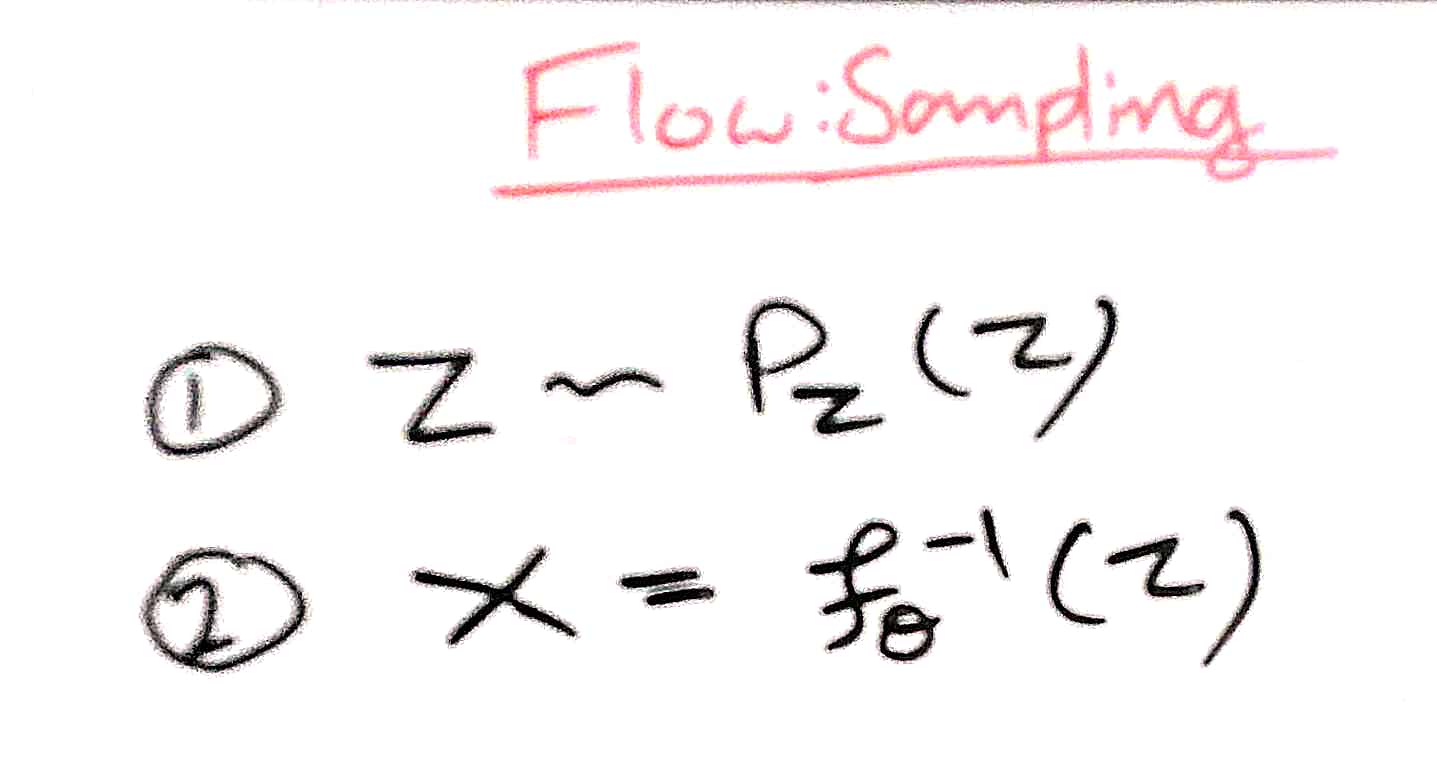 Flow: Sampling
① z ~ P_z(z)
② x = f_θ^{-1}(z)